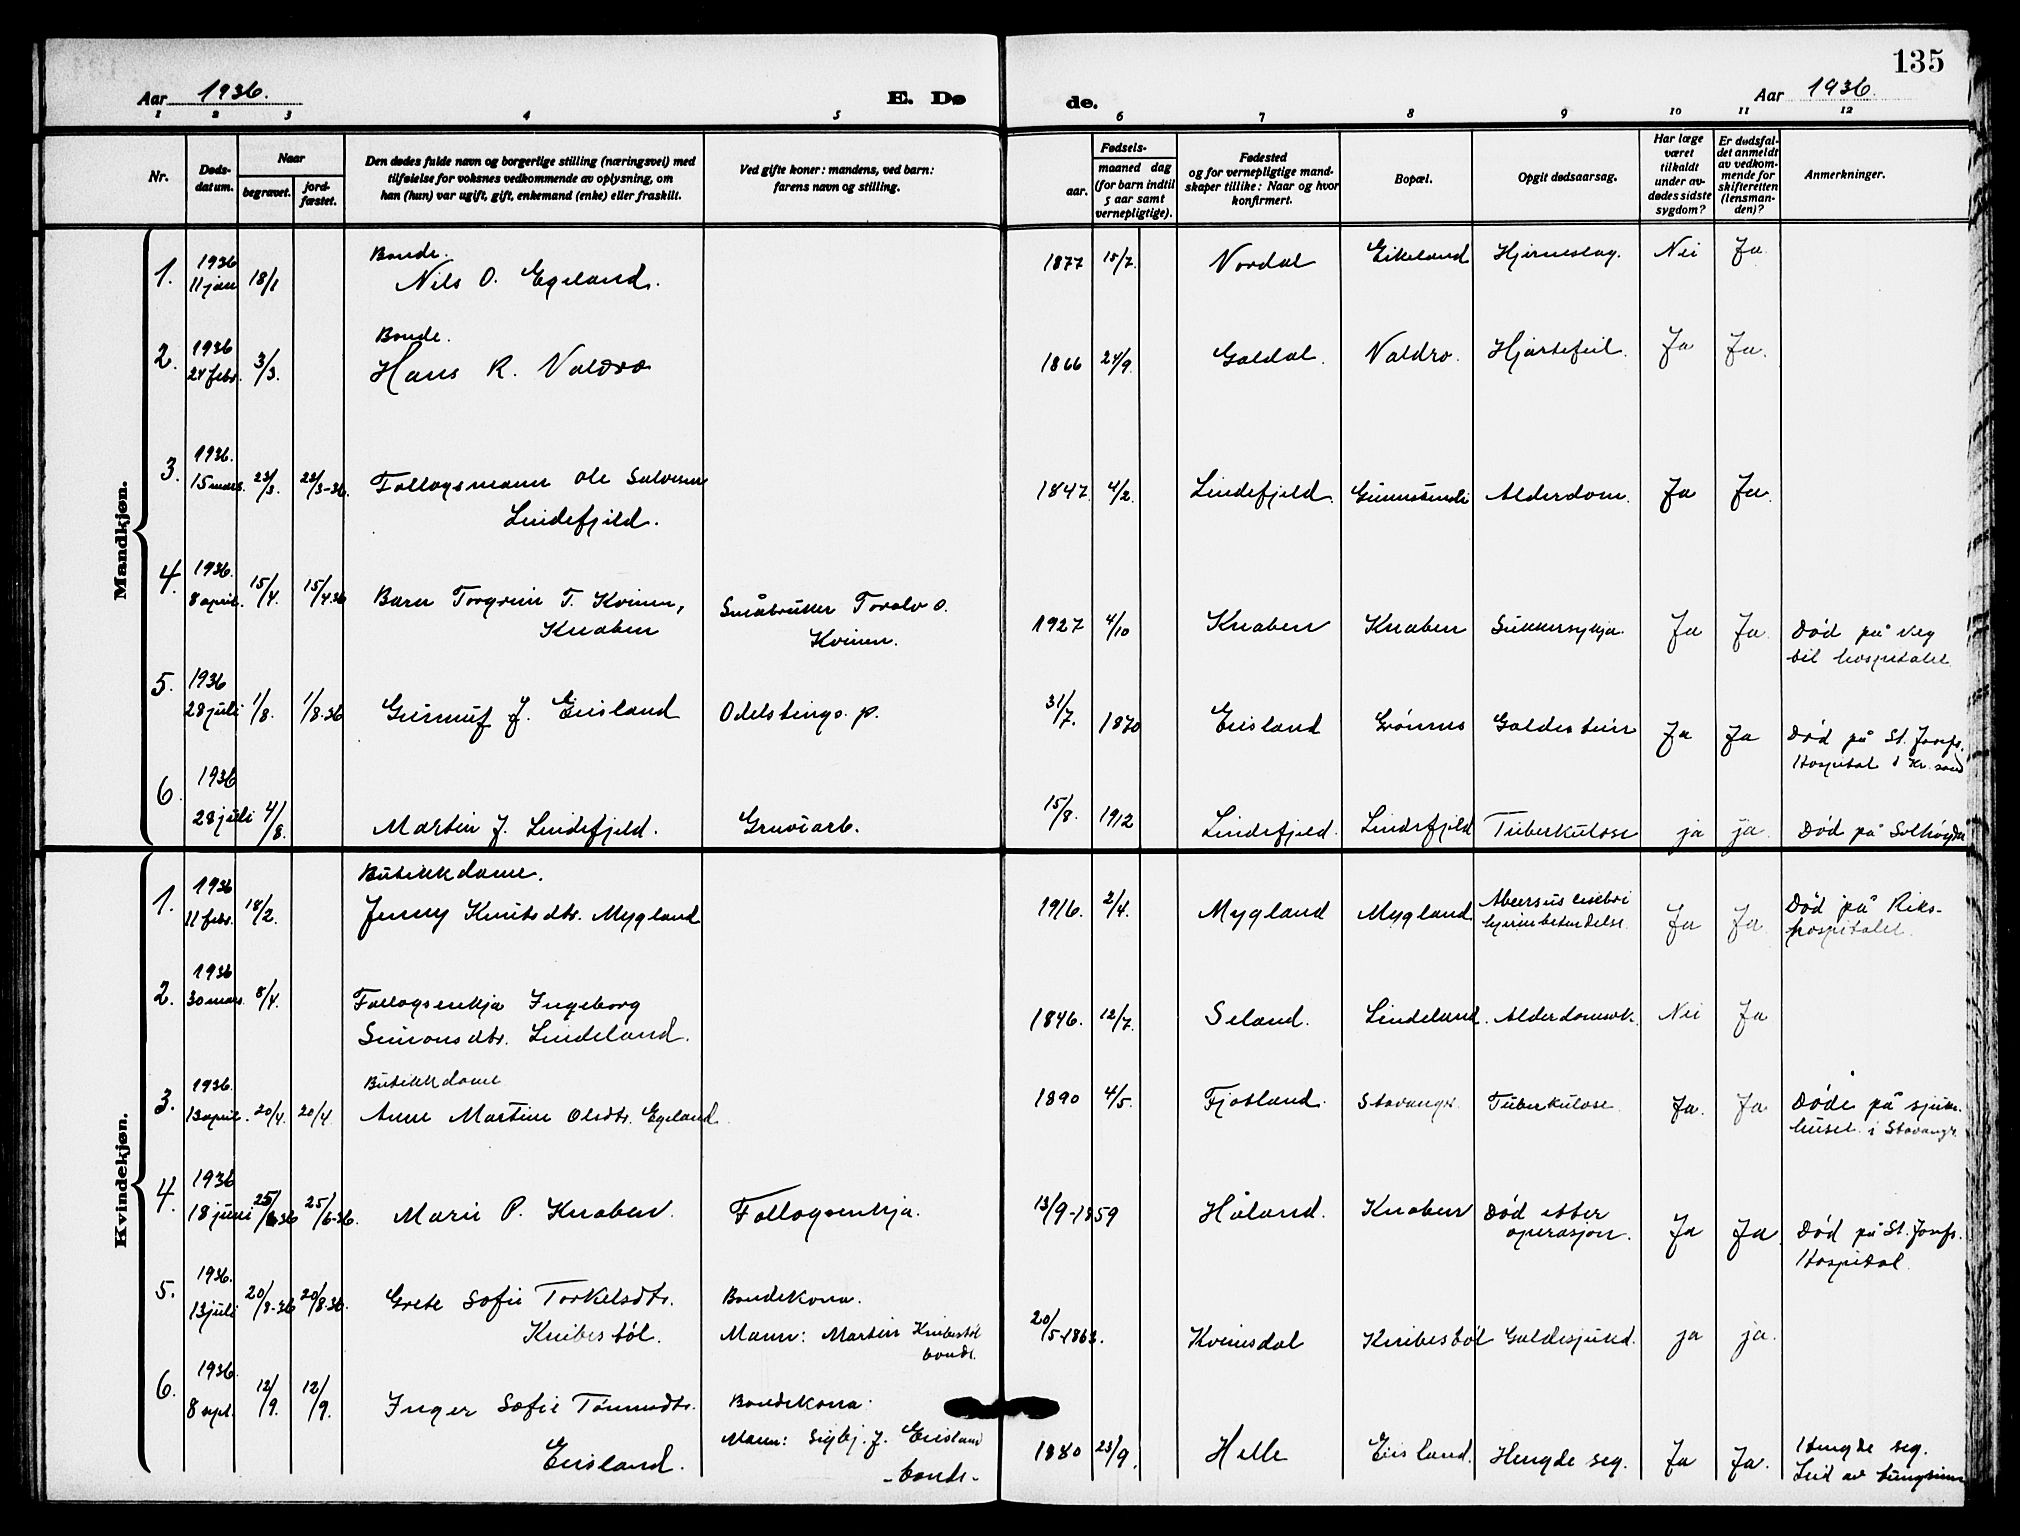 135
Aar 1936.
E. Dø
de.
Aar 1936.
1 2 3 4 5 6 7 8 9 10 11 12
Nr.
Døds-
datum.
Naar
begravet.
jord-
fæstet.
Den dødes fulde navn og borgerlige stilling (næringsvei) med
tilføielse for voksnes vedkommende av oplysning, om
han (hun) var ugift, gift, enkemand (enke) eller fraskilt.
Ved gifte koner: mandens, ved barn:
farens navn og stilling.
Fødsels-
aar.
maaned dag
(for barn indtil
5 aar samt
vernepligtige).
Fødested
og for vernepligtige mand-
skaper tillike: Naar og hvor
konfirmert.
Bopæl.
Opgit dødsaarsag.
Har læge
været
tilkaldt
under av-
dødes sidste
sygdom?
Er dødsfal-
det anmeldt
av vedkom-
mende for
skifteretten
(lensman-
den)?
Anmerkninger.
Mandkjøn.
1. 1936 11 jan 18/1 Bonde.
Nils O. Egeland. 1877 15/7. Nordal Eikeland Hjerneslag. Nei Ja
2. 1936 24 febr. 3/3. Bonde.
Hans R. Naldro 1866 24/9. Galdal. Naldro. Hjartefeil. Ja Ja.
3. 1936. 15 mars. 23/3. 23/3-36. Follogsmann Ole Salvesen
Lindefjeld. 1847. 4/2. Lindefjeld. Alderdom. Ja Ja.
4. 1936. 8 april. 15/4. 15/4.36 Barn Torgrim T. Kvinen,
Knaben
Småbruker Toralv O.
Kvinen. 1927 4/10 Knaben Knaben Sukkersykja. Ja Ja. Død på veg
til hospitalet.
5. 1936 28 juli 1/8. 1/8.36 Gunnuf J. Eiesland Odelstings. p. 31/7. 1870 Eiesland Galdestein Ja Ja Død på St. Josefs.
Hospital i Kr. sand
6. 1936 28 juli 4/8. Martin J. Lindefjeld. Gruvearb. 15/8. 1912 Lindefjeld. Lindefjeld Tuberkulose ja ja. Død på Solhøgda
Kvindekjøn.
1. 1936 11 febr. 18/2. Butikkdame.
Jenny Knutsdtr. Mygland 1916. 2/4. Mygland Mygland
hjernebetendelse. Ja Ja. Død på Riks-
hospitalet.
2. 1936 30 mars. 8/4. Follogsenkja Ingeborg
Simonsdtr. Lindeland. 1846. 12/7. Seland. Lindeland. Alderdomsvk. Nei Ja
3. 1936. 13 april. 20/4. 20/4 Butikkdame
Anne Martine Olsdtr. Egeland. 1890 4/5. Fjotland. Stavanger. Tuberkulose. Ja. Ja Døde på sjuke-
huset i Stavanger.
4. 1936 18 juni 25/6.36 25/6-36. Marie P. Knaben. Follogsenkja. 13/9-1859 Håland. Knaben Død etter
operasjon. Ja Ja. Død på St. Josefs.
Hospital.
5. 1936. 13 juli 20/8-36 20/8-36. Grete Sofie Torkelsdtr.
Knibestøl.
Bondekona.
Mann: Martin Knibestøl
bonde. 20/5-1863. Kvinesdal Knibestøl Galdesjukd. ja ja.
6. 1936. 8 sept. 12/9. 12/9. Inger Sofie Tønnesdtr.
Eiesland.
Bondekona.
Mann: Sigbj. J. Eiesland
- bonde - 1880 23/9. Helle Eiesland. Hengde seg. Ja Ja. Hengde seg.
Leid av tungsinn